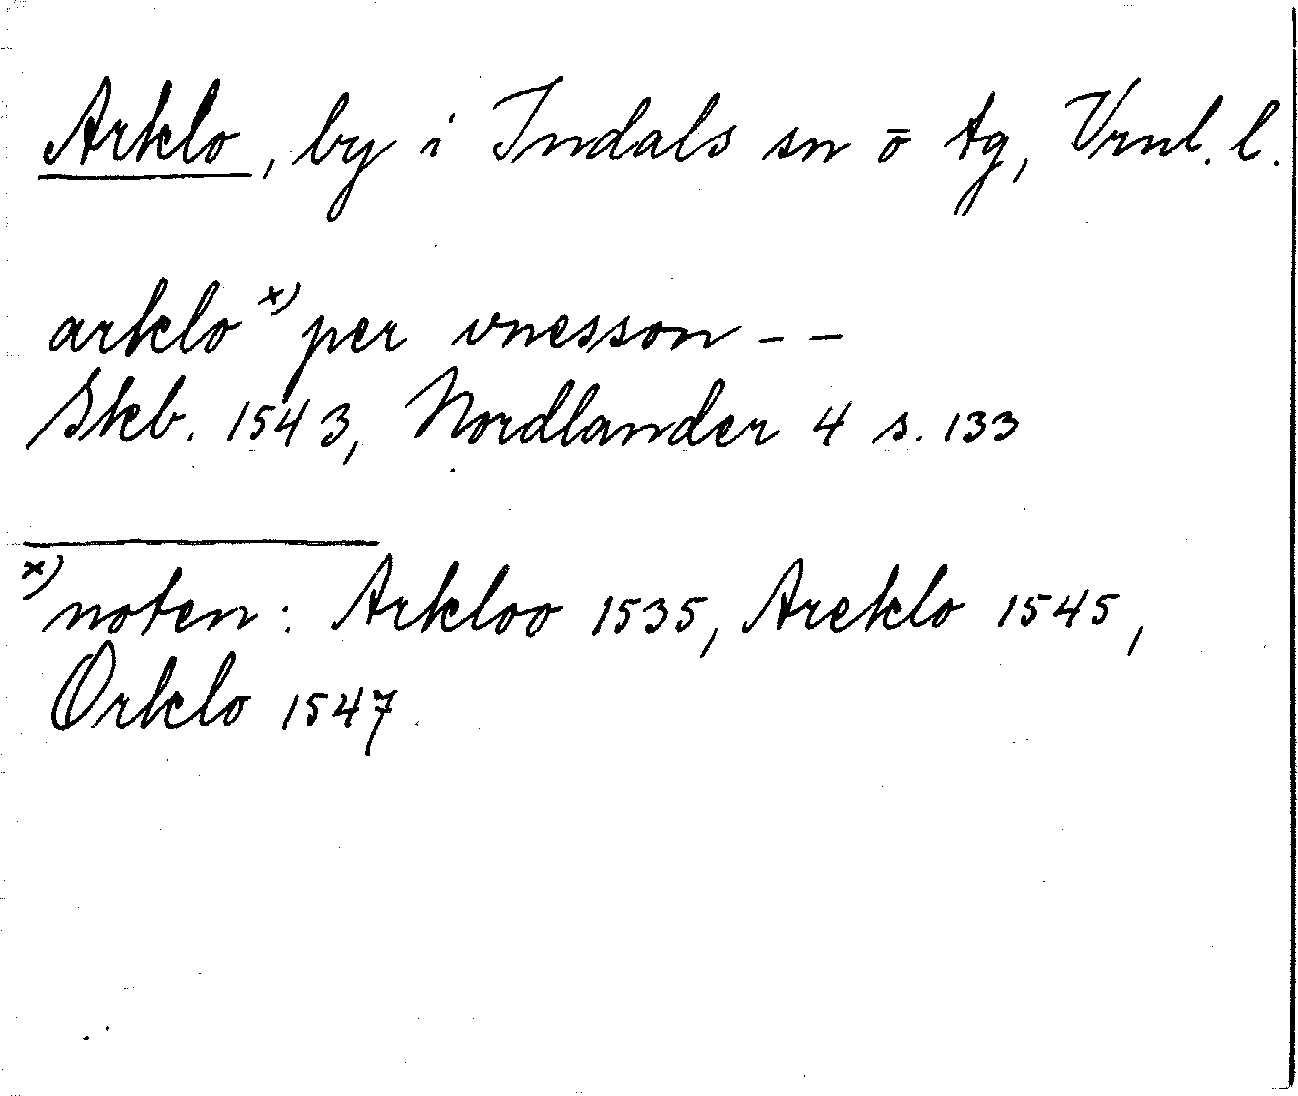 Arklo, by i Indals sn o tg, Vrnl. l.
arklo x) per vnesson – –
Skb. 1543, Nordlander 4 s. 133
x) noten: Arkloo 1535, Areklo 1545,
Orklo 1547